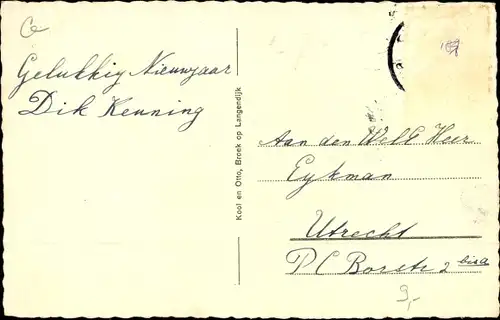 Gelukkig Nieuwjaar
Dik Kenning
Kool en Otto, Broek op Langendijk
Aan den Welb Heer
Eykman
Utrecht
P C Borstr 2 bisa
9,-